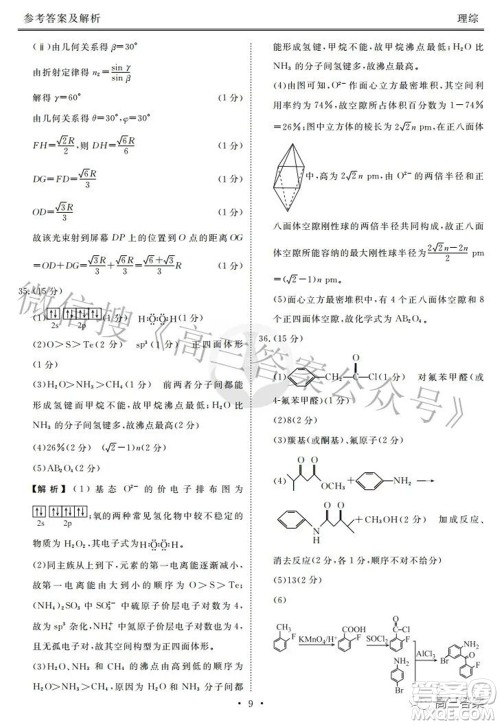 参考答案及解析
理综
(ⅱ)由几何关系得 β=30°
由折射定律得 n₂=sinγ/sinβ
解得 γ=60° (1分)
由几何关系得 θ=30°,φ=30° (1分)
FH=√2R/2,则 DH=√6R/6 (1分)
DG=FD=√6R/3 (1分)
OD=√3R/3 (1分)
故该光束射到屏幕 DP 上的位置到 O 点的距离 OG
=OD+DG=√3R/3+√6R/3=(√6+√3)R/3 (1分)
35.(15分)
(1) 2s 2p (1分) H:O:O:H(1分)
(2)O>S>Te(2分) sp³ (1分) 正四面体形(1分)
(3)H₂O>NH₃>CH₄ 前两者分子间都能形成氢键,而甲烷不能,故甲烷沸点最低,H₂O 比 NH₃ 的分子间氢键更多,故沸点最高。(2分)
(4)26%(2分) (√2-1)n(2分)
(5)AB₂O₄(2分)
【解析】(1)基态 O²⁻ 的价电子排布图为
2s 2p ;氧的两种常见氢化物中较不稳定的
物质为 H₂O₂,其电子式为H:O:O:H。
(2)同主族从上到下,元素的第一电离能逐渐减小,
故第一电离能由大到小的顺序为 O>S>Te;
由于 SO₄²⁻ 中硫原子价层电子对数为 4,故为
sp³ 杂化,NH₄⁺ 中氮原子价层电子对数为 4,且无孤电子对,故其空间构型为正四面体形。
(3)H₂O、NH₃ 和 CH₄ 的沸点由高到低的顺序为
H₂O>NH₃>CH₄,这是由于前两者分子间都
能形成氢键,甲烷不能,故甲烷沸点最低,H₂O 比
NH₃ 的分子间氢键更多,故沸点最高。
(4)由图可知,O²⁻ 作面心立方最密堆积,其空间利
用率约为 74%,故空隙所占体积百分数约 1-74%
=26%;图中立方体的棱长为 2√2n pm,在正八面体
中,高为 2√2n pm,由 O²⁻ 的两倍半径和正
八面体空隙刚性球的两倍半径共同构成,故正八面体空隙
能填充的最大刚性球半径为 (2√2n-2n)/2
=(√2-1)n pm。
(5)面心立方晶胞中,有 4 个正八面体空隙和 8
个正四面体空隙,故化学式为 AB₂O₄。
36.(15分)
(1) Cl(1分) 对氟苯甲醛(或
4-氟苯甲醛)(1分)
(2)8(2分)
(3)羰基(或酮基)、氟原子(2分)
(4) OCH₃ + NH₂ →
N H +CH₃OH(2分) 加成反应、
消去反应(2分)
(5)13(2分)
(6)
CH₃ F KMnO₄/H⁺ COOH F SOCl₂ O Cl F AlCl₃ NH₂ Br NH₂ O F Br (3分)
· 9 ·
微信搜《高三答案公众号》
高三答案